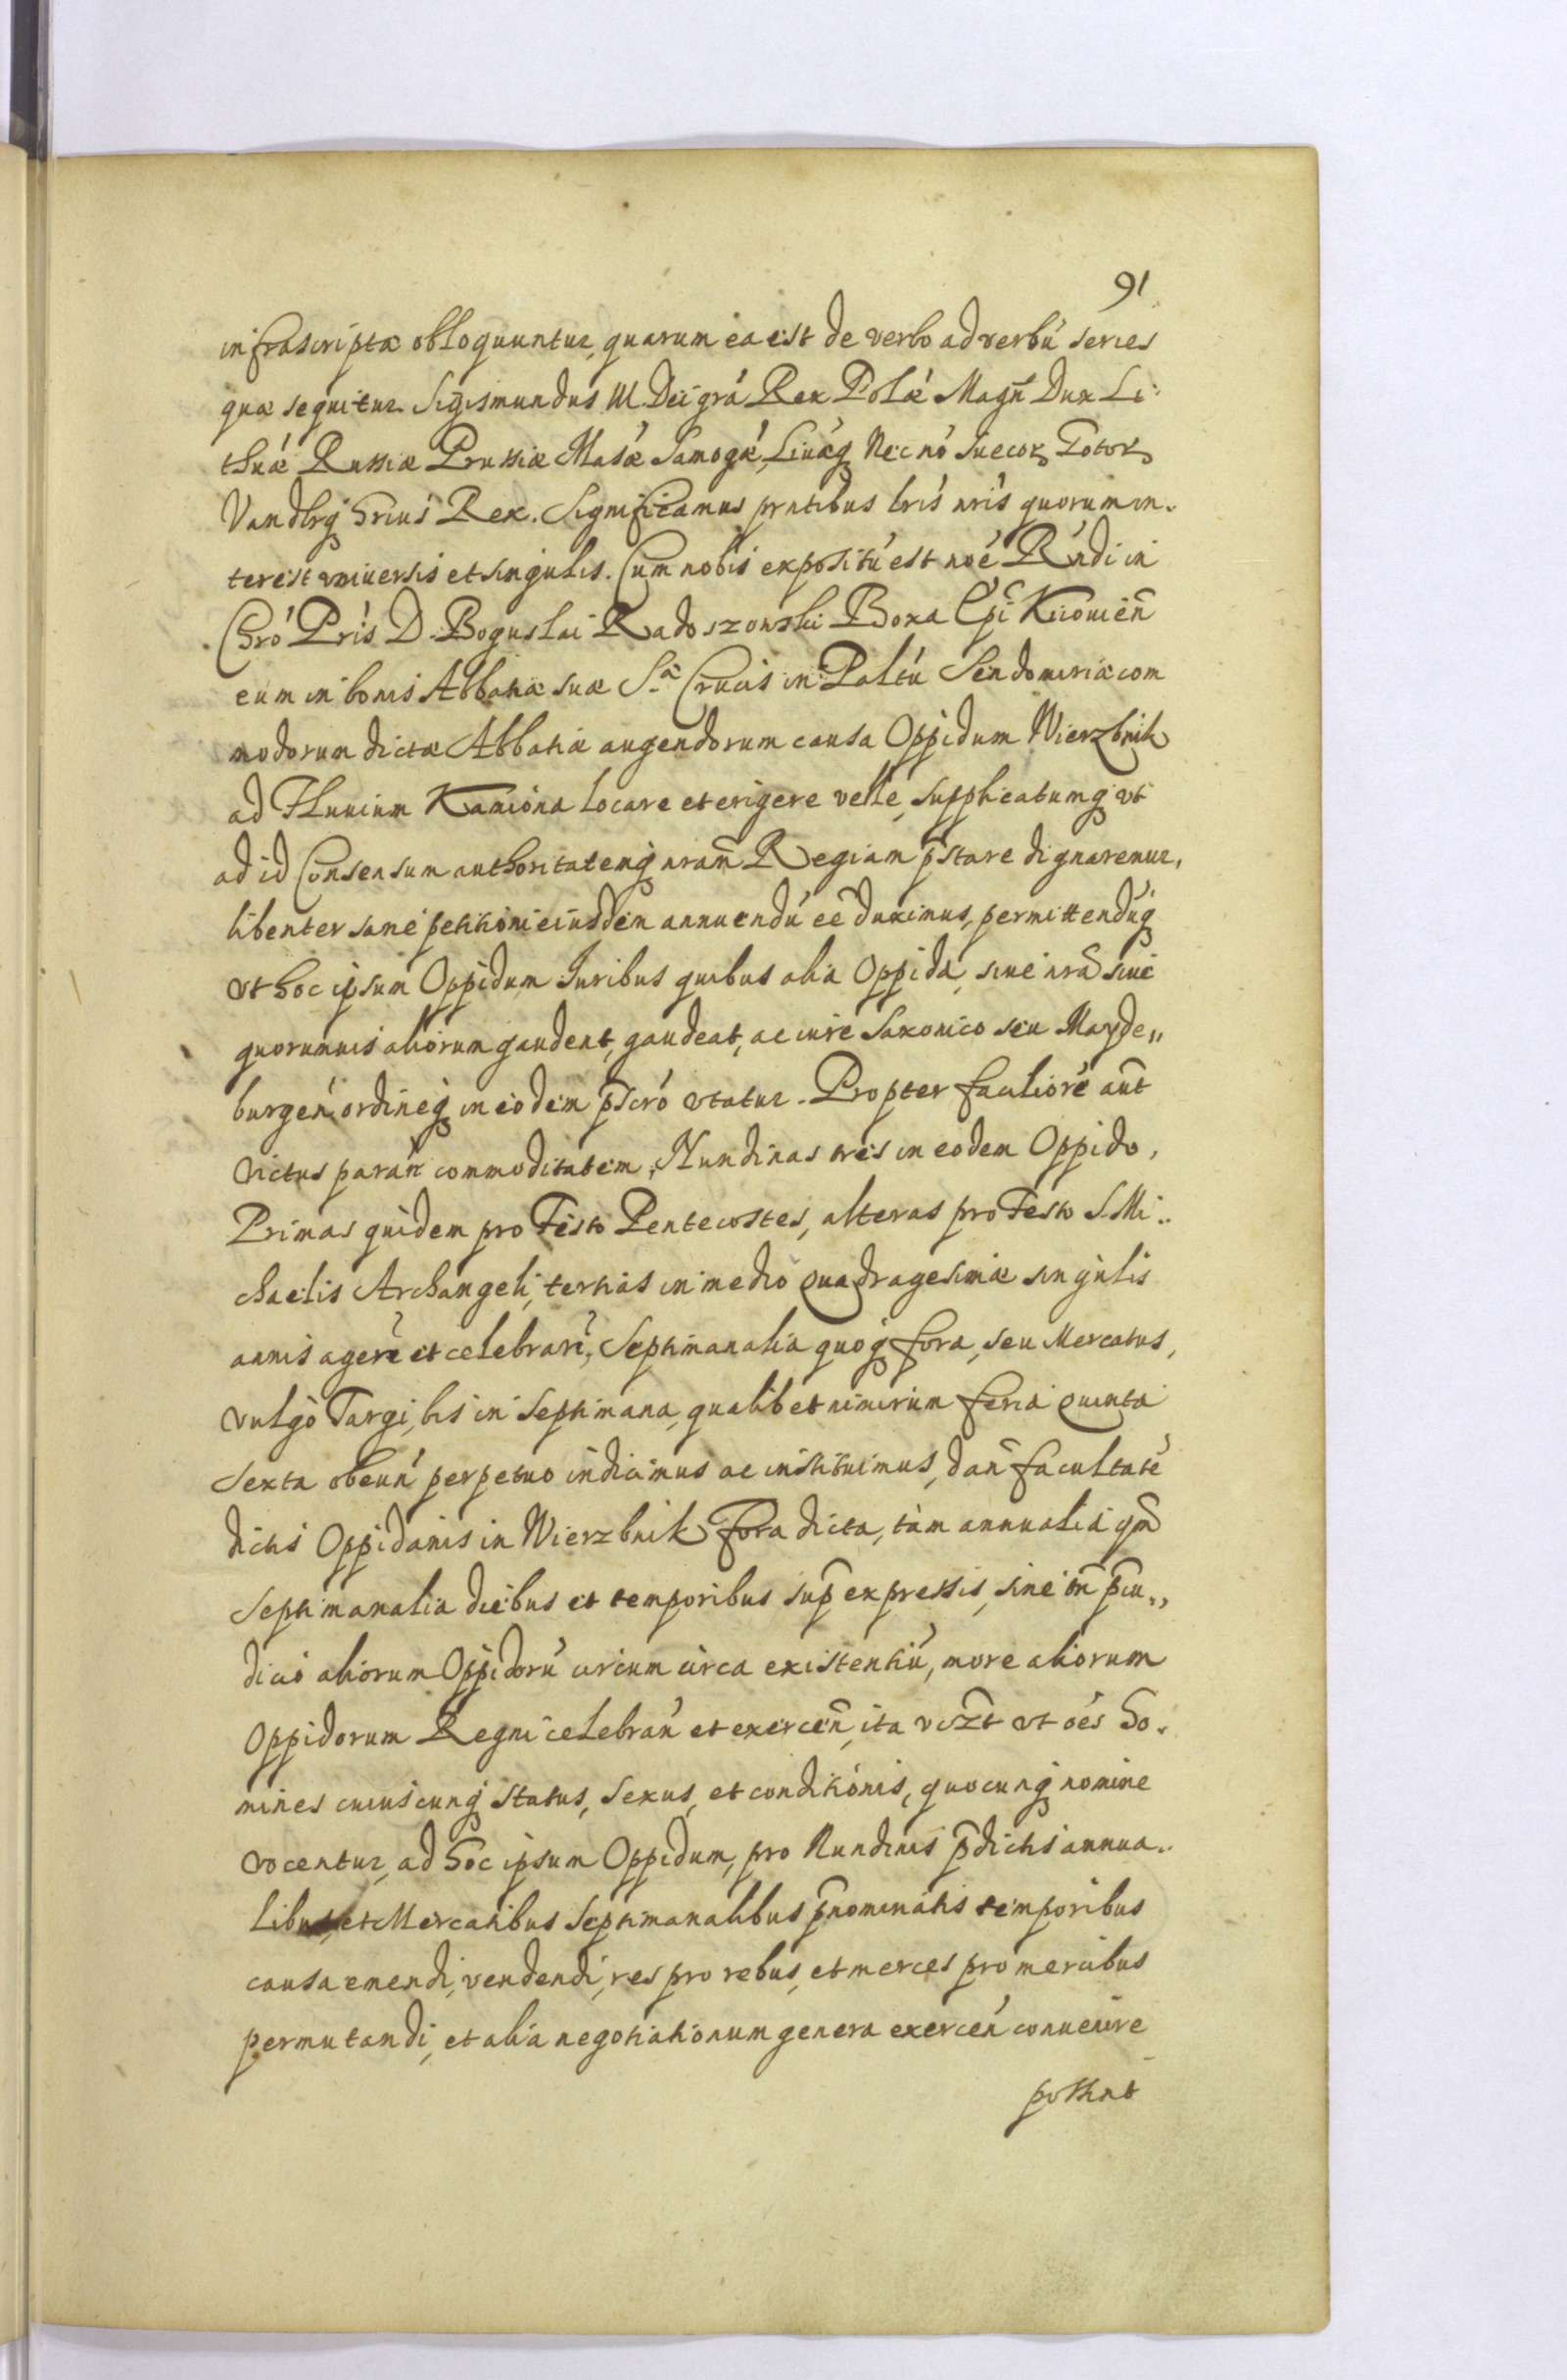 91
infrascriptæ obloquuntur, quarum ea est de verbo ad verbú series
quæ sequitur. Sigismundus III Dei grá Rex Polæ Magñ Dux Li-
thuæ Russiæ Prussiæ Masæ Samogæ, Liuæq Nec nó Suecoꝝ Gotoꝝ
Vandlrq hrius Rex. Significamus pntibus lris nris quorum in-
terest vniuersis et singulis. Cum nobis expositú est noé Rndi in
Chró Pris D. Boguslai Radoszowski Boxa Epi Kiouieñ
eum in bonis Abbatiæ suæ S-æ Crucis in Paltú Sendomiriæ com
modorum dictæ Abbatiæ augendorum causa Oppidum Wierzbnik
ad Fluuium Kamiona locare et erigere velle, supplicatumq vt
ad id Consensum authoritatemq nrãm Regiam p̃stare dignaremur,
libenter sane petitioni eiusdem annuendú eẽ duximus, permittendúq
vt hoc ipsum Oppidum Iuribus quibus alia Oppida, siue nrã siue
quorumuis aliorum gaudent, gaudeat, ac iure Saxonico seu Mayde„
burgeń ordineq in eodem p̃scró vtatur. Propter faciliorẽ aũt
victus parañ commoditatem, Nundinas tres in eodem Oppido,
Primas quidem pro Festo Pentecostes, alteras pro Festo S. Mi-
chaelis Archangeli, tertias in medio Quadragesimæ singulis
annis agerẽ et celebrarĩ, Septimanalia quoq fora, seu Mercatus,
vulgo Targi, bis in Septimana, qualibet nimirum feria quinta
Sexta obeuń perpetuo indicimus ac instituimus, dañ facultatẽ
dictis Oppidanis in Wierzbnik Fora dicta, tàm annualia qm̃
Septimanalia diebus et temporibus sup̃ expressis, sine tñ p̃iu„
dicio aliorum Oppidorú circum circa existentiú, more aliorum
Oppidorum Regni celebrań et exerceñ, ita vizt vt oẽs ho-
mines cuiuscunq status, Sexus, et conditionis, quocunq nomine
vocentur, ad hoc ipsum Oppidum, pro Nundinis p̃dictis annua-
libus, et Mercatibus Septimanalibus p̃nominatis temporibus
causa emendi, vendendi, res pro rebus, et merces pro mercibus
permutandi, et alia negotiationum genera exerceń conuenire
possint